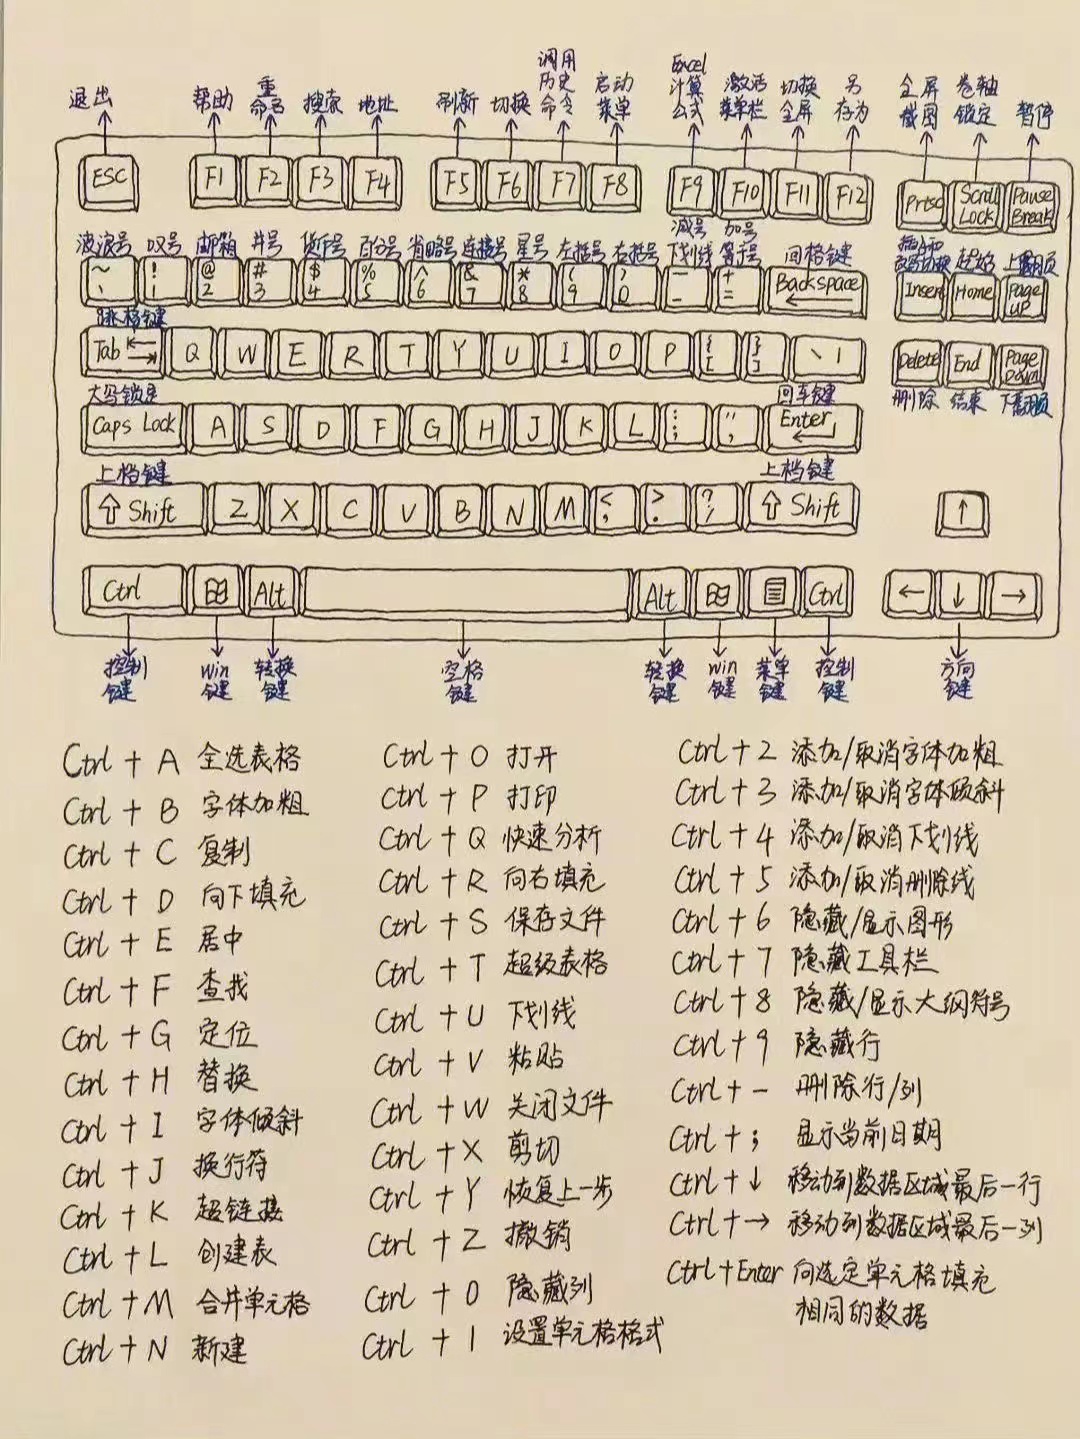 退出 帮助 重命名 搜索 地址 刷新 切换 调用历史命令 启动菜单 Excel计算公式 激活菜单栏 切换全屏 另存为 全屏截图 卷轴锁定 暂停
ESC F1 F2 F3 F4 F5 F6 F7 F8 F9 F10 F11 F12 Prtsc Scroll Lock Pause Break
波浪号 叹号 邮箱 井号 货币号 百分号 省略号 连接号 星号 左括号 右括号 减号下划线 加号等于号 回格键 起始 上翻页
~ ` ! 1 @ 2 # 3 $ 4 % 5 ^ 6 & 7 * 8 ( 9 ) 0 — _ + = Backspace Insert Home Page UP
跳格键
Tab Q W E R T Y U I O P { [ } ] \ | Delete End Page Down
大写锁定 回车键 删除 结束 下翻页
Caps Lock A S D F G H J K L : ; " , Enter
上档键 上档键
Shift Z X C V B N M < , > . ? / Shift ↑
Ctrl Alt Alt Ctrl ← ↓ →
控制键 win键 转换键 空格键 转换键 win键 菜单键 控制键 方向键
Ctrl + A 全选表格
Ctrl + B 字体加粗
Ctrl + C 复制
Ctrl + D 向下填充
Ctrl + E 居中
Ctrl + F 查找
Ctrl + G 定位
Ctrl + H 替换
Ctrl + I 字体倾斜
Ctrl + J 换行符
Ctrl + K 超链接
Ctrl + L 创建表
Ctrl + M 合并单元格
Ctrl + N 新建
Ctrl + O 打开
Ctrl + P 打印
Ctrl + Q 快速分析
Ctrl + R 向右填充
Ctrl + S 保存文件
Ctrl + T 超级表格
Ctrl + U 下划线
Ctrl + V 粘贴
Ctrl + W 关闭文件
Ctrl + X 剪切
Ctrl + Y 恢复上一步
Ctrl + Z 撤销
Ctrl + 0 隐藏列
Ctrl + 1 设置单元格格式
Ctrl + 2 添加/取消字体加粗
Ctrl + 3 添加/取消字体倾斜
Ctrl + 4 添加/取消下划线
Ctrl + 5 添加/取消删除线
Ctrl + 6 隐藏/显示图形
Ctrl + 7 隐藏工具栏
Ctrl + 8 隐藏/显示大纲符号
Ctrl + 9 隐藏行
Ctrl + - 删除行/列
Ctrl + ; 显示当前日期
Ctrl + ↓ 移动到数据区域最后一行
Ctrl + → 移动到数据区域最后一列
Ctrl + Enter 向选定单元格填充
相同的数据